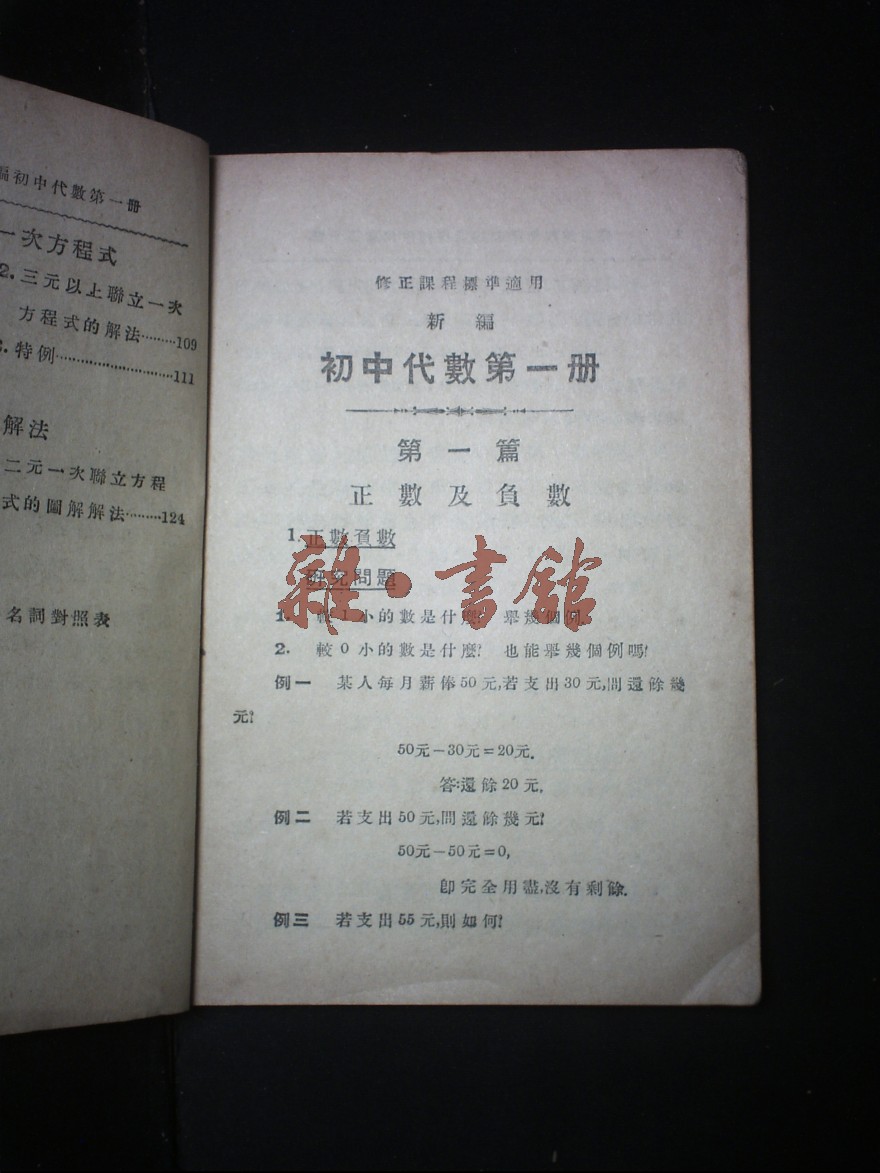 編初中代數第一册
一次方程式
2.三元以上聯立一次
方程式的解法………109
3.特例…………………………111
解法
二元一次聯立方程
式的圖解解法………124
名詞對照表
修正課程標準適用
新編
初中代數第一册
第一篇
正數及負數
1.正數負數
研究問題
雜·書館
1. 較1小的數是什麼? 舉幾個例.
2. 較0小的數是什麼? 也能舉幾個例嗎?
例一 某人每月薪俸50元,若支出30元,問還餘幾
元?
50元-30元=20元.
答:還餘20元.
例二 若支出50元,問還餘幾元?
50元-50元=0,
卽完全用盡,沒有剩餘.
例三 若支出55元,則如何?